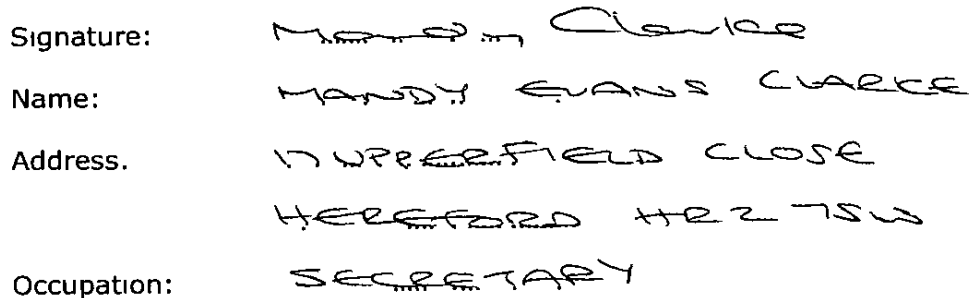 Signature: Mandy Clarke
Name: MANDY EVANS CLARKE
Address. 17 UPPERFIELD CLOSE
HEREFORD HR2 7SW
Occupation: SECRETARY